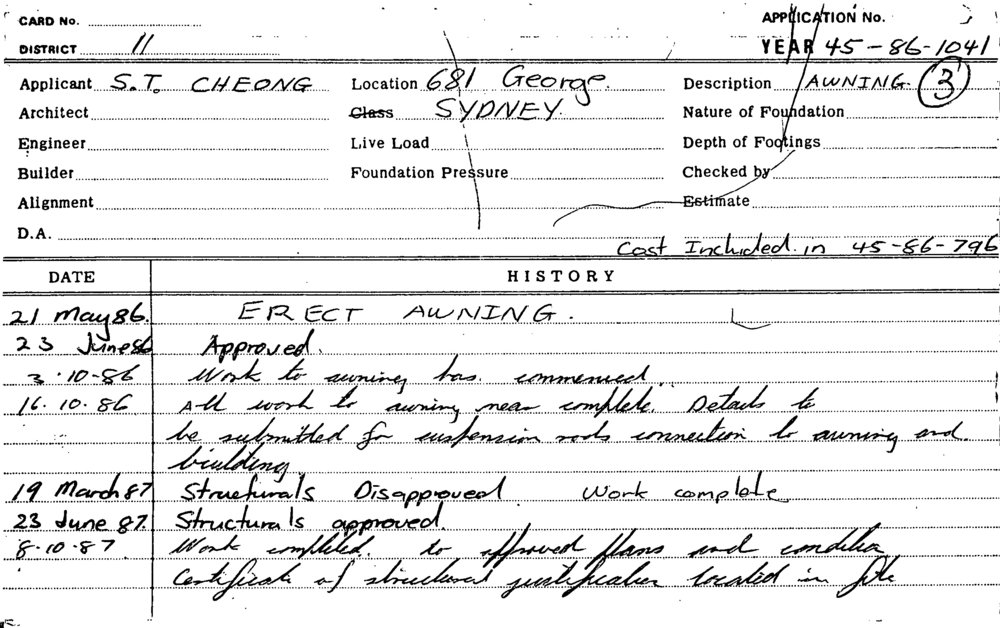 CARD No.
APPLICATION No.
DISTRICT 11
YEAR 45-86-1041
Applicant S.T. CHEONG Location 681 George. Description AWNING. 3
Architect Class SYDNEY. Nature of Foundation
Engineer Live Load Depth of Footings
Builder Foundation Pressure Checked by
Alignment Estimate
D.A.
Cost Included in 45-86-796
DATE HISTORY
21 May 86. ERECT AWNING.
23 June 86 Approved.
3.10-86 Work to awning has commenced.
16.10.86 All work to awning near complete. Details to
be submitted for suspension rods connection to awning and
building
19 March 87 Structurals Disapproved Work complete
23 June 87. Structurals approved.
8.10.87. Work completed. to approved plans and condition
Certificate of structural justification located in file